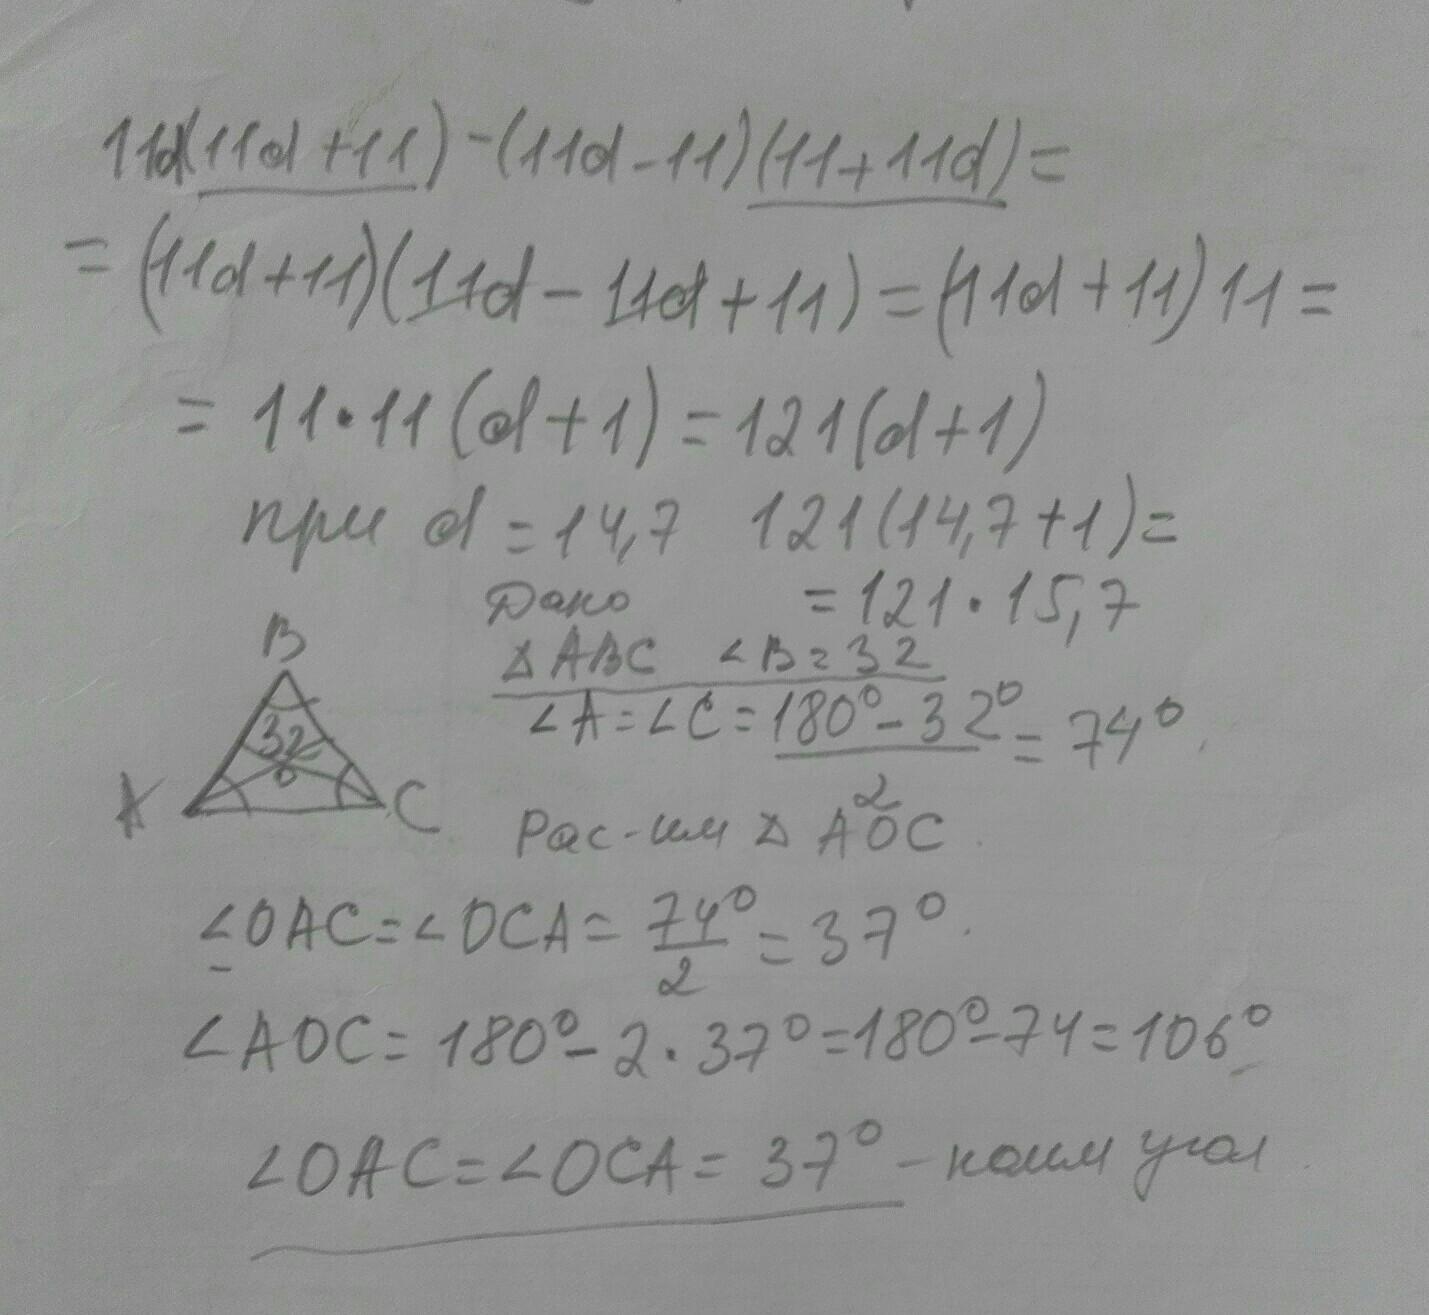 11d(11d+11)-(11d-11)(11+11d)=
=(11d+11)(11d-11d+11)=(11d+11)11=
=11·11(d+1)=121(d+1)
при d=14,7 121(14,7+1)=
=121·15,7
Дано
△ABC ∠B=32
B
32
O
A
C
∠A=∠C=180°-32°/2=74°.
Рас-им △AOC.
∠OAC=∠OCA=74°/2=37°.
∠AOC=180°-2·37°=180°-74=106°
∠OAC=∠OCA=37°-наим угол.